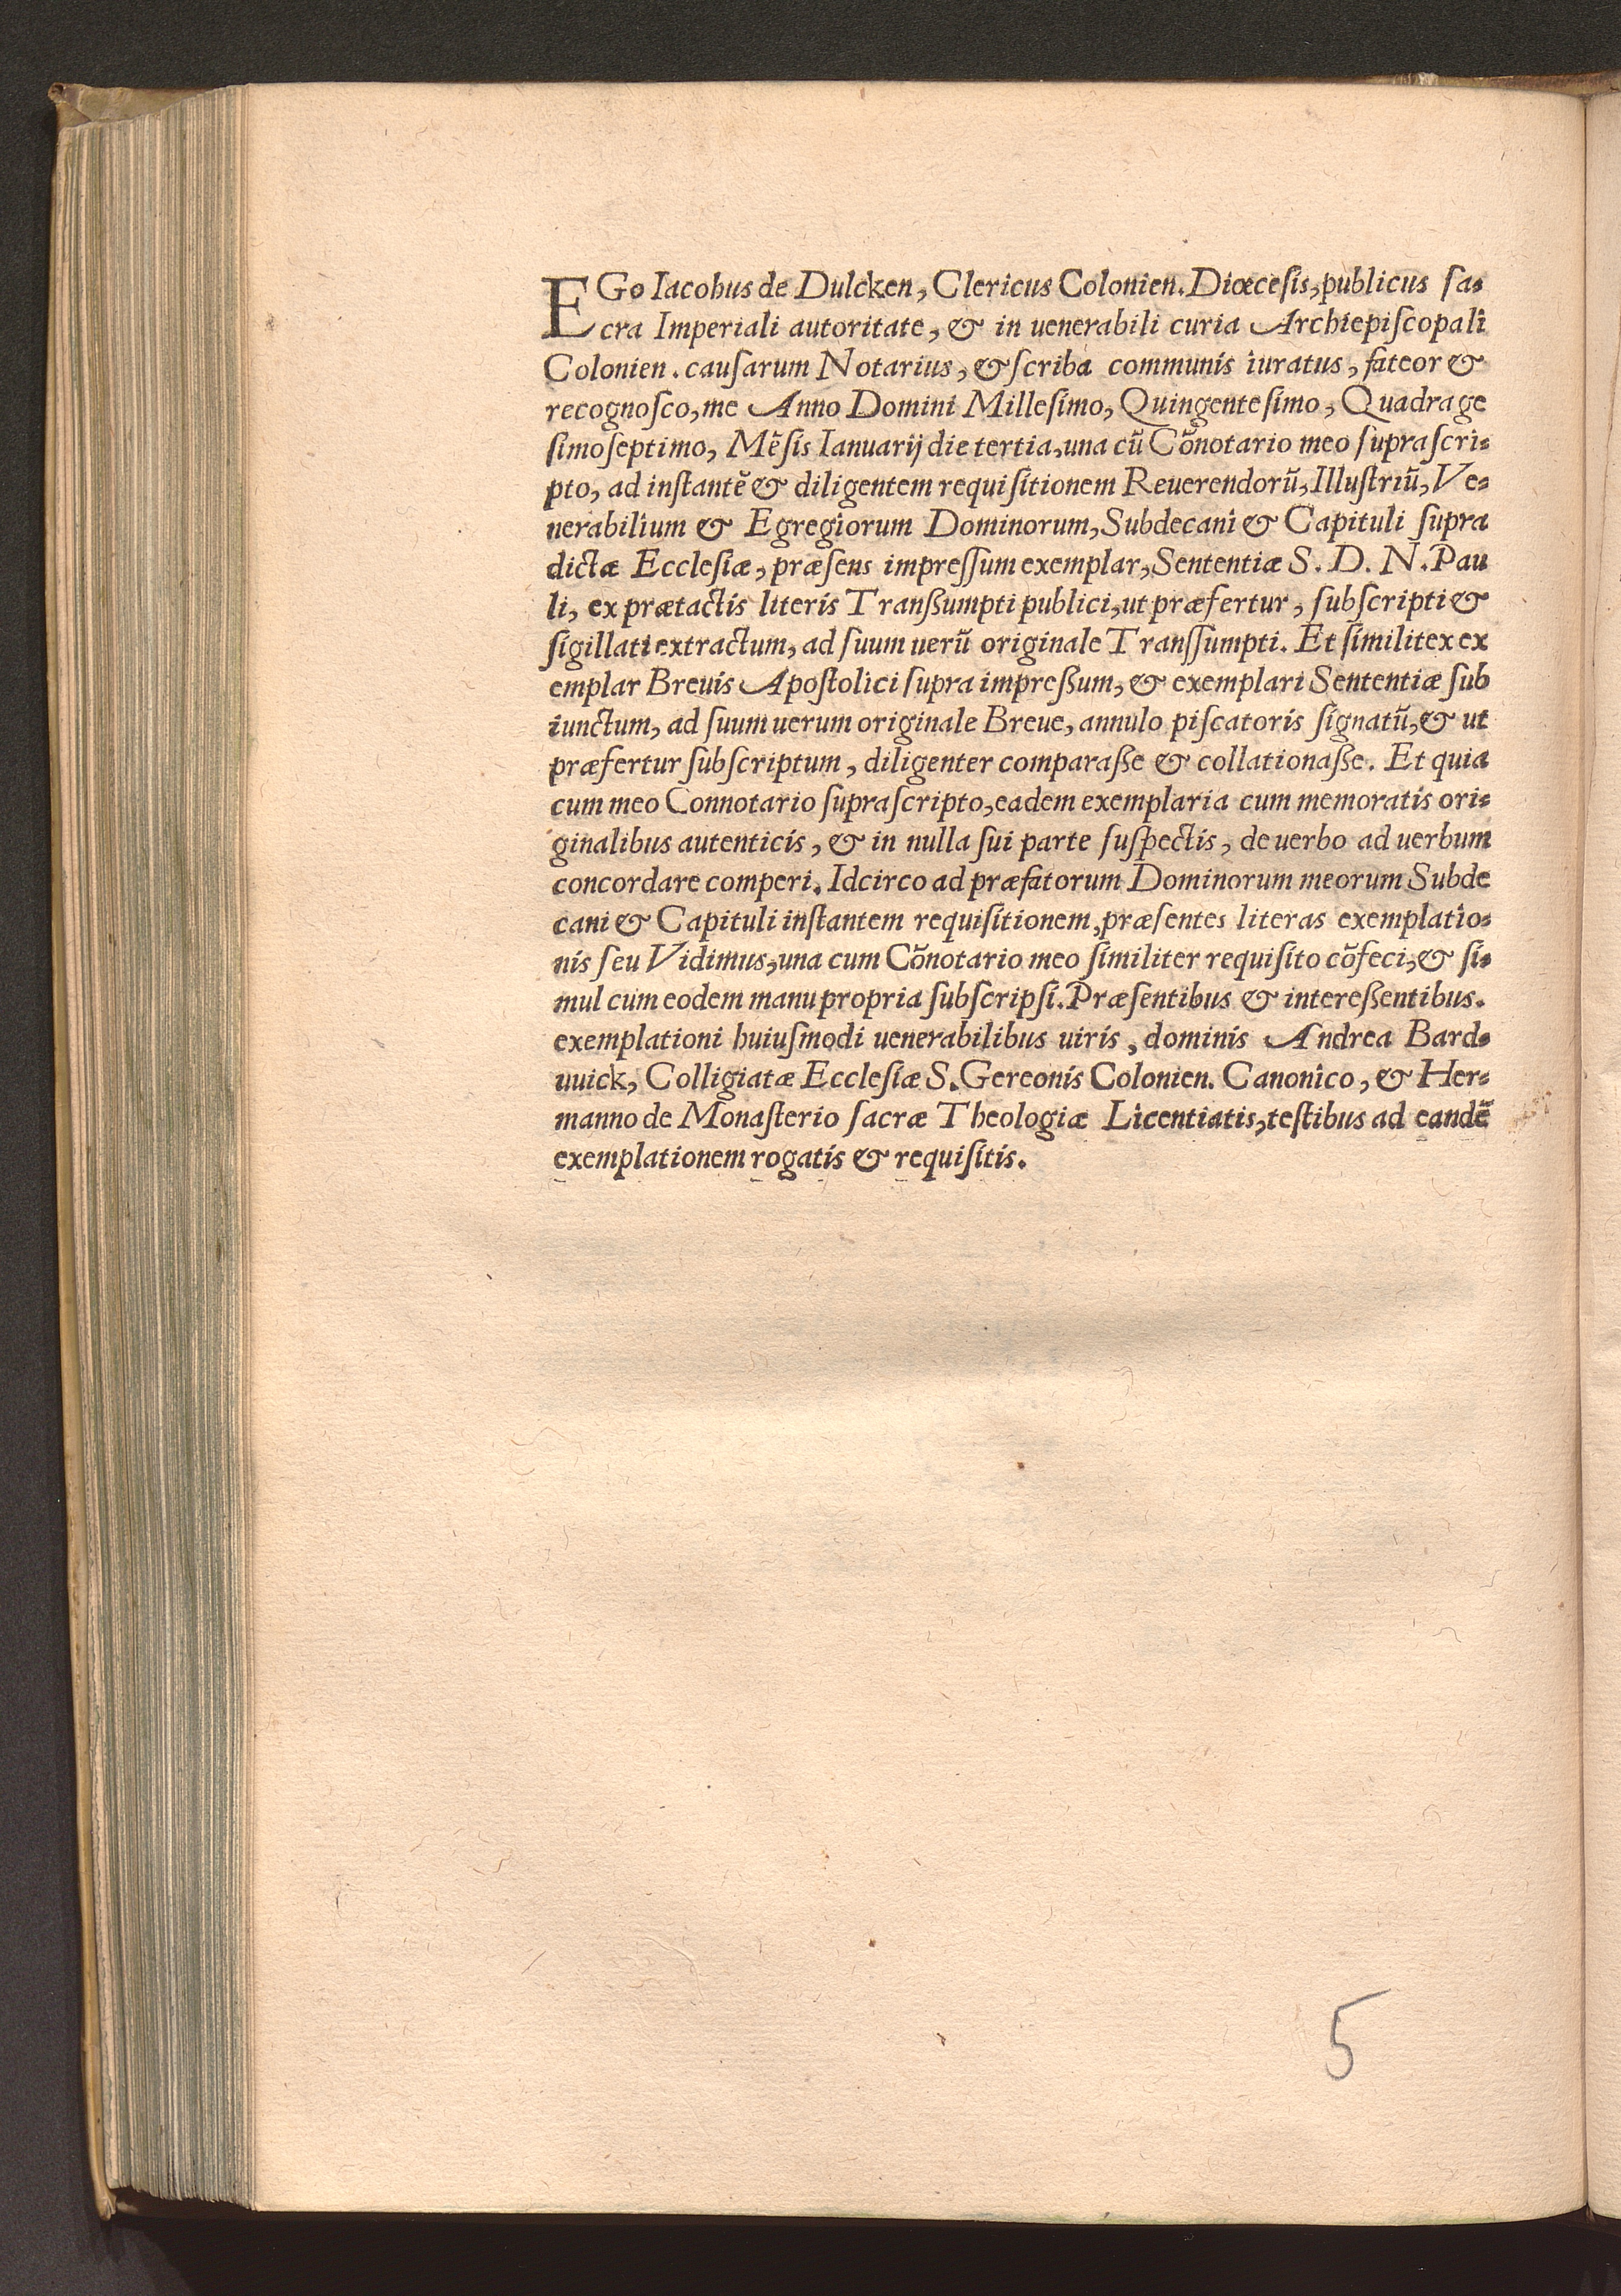 EGo Iacobus de Dulcken, Clericus Colonien. Diœcesis, publicus ſa-
cra Imperiali autoritate, & in uenerabili curia Archiepiſcopali
Colonien. cauſarum Notarius, & ſcriba communis iuratus, fateor &
recognoſco, me Anno Domini Milleſimo, Quingenteſimo, Quadrage
ſimoſeptimo, Mẽſis Ianuarij die tertia, una cũ Cõnotario meo ſupraſcri-
pto, ad inſtantẽ & diligentem requiſitionem Reuerendorũ, Illuſtriũ, Ve-
nerabilium & Egregiorum Dominorum, Subdecani & Capituli ſupra
dictæ Eccleſiæ, præſens impreſſum exemplar, Sententiæ S. D. N. Pau
li, ex prætactis literis Tranßumpti publici, ut præfertur, ſubſcripti &
ſigillati extractum, ad ſuum uerũ originale Tranſſumpti. Et ſimilitex ex
emplar Breuis Apoſtolici ſupra impreßum, & exemplari Sententiæ ſub
iunctum, ad ſuum uerum originale Breue, annulo piſcatoris ſignatũ, & ut
præfertur ſubſcriptum, diligenter comparaße & collationaße. Et quia
cum meo Connotario ſupraſcripto, eadem exemplaria cum memoratis ori-
ginalibus autenticis, & in nulla ſui parte ſuſpectis, de uerbo ad uerbum
concordare comperi. Idcirco ad præfatorum Dominorum meorum Subde
cani & Capituli inſtantem requiſitionem, præſentes literas exemplatio-
nis ſeu Vidimus, una cum Cõnotario meo ſimiliter requiſito cõfeci, & ſi-
mul cum eodem manu propria ſubſcripſi. Præſentibus & intereßentibus.
exemplationi huiuſmodi uenerabilibus uiris, dominis Andrea Bard-
uuick, Colligiatæ Eccleſiæ S. Gereonis Colonien. Canonico, & Her-
manno de Monaſterio ſacræ Theologiæ Licentiatis, teſtibus ad eandẽ
exemplationem rogatis & requiſitis.
5